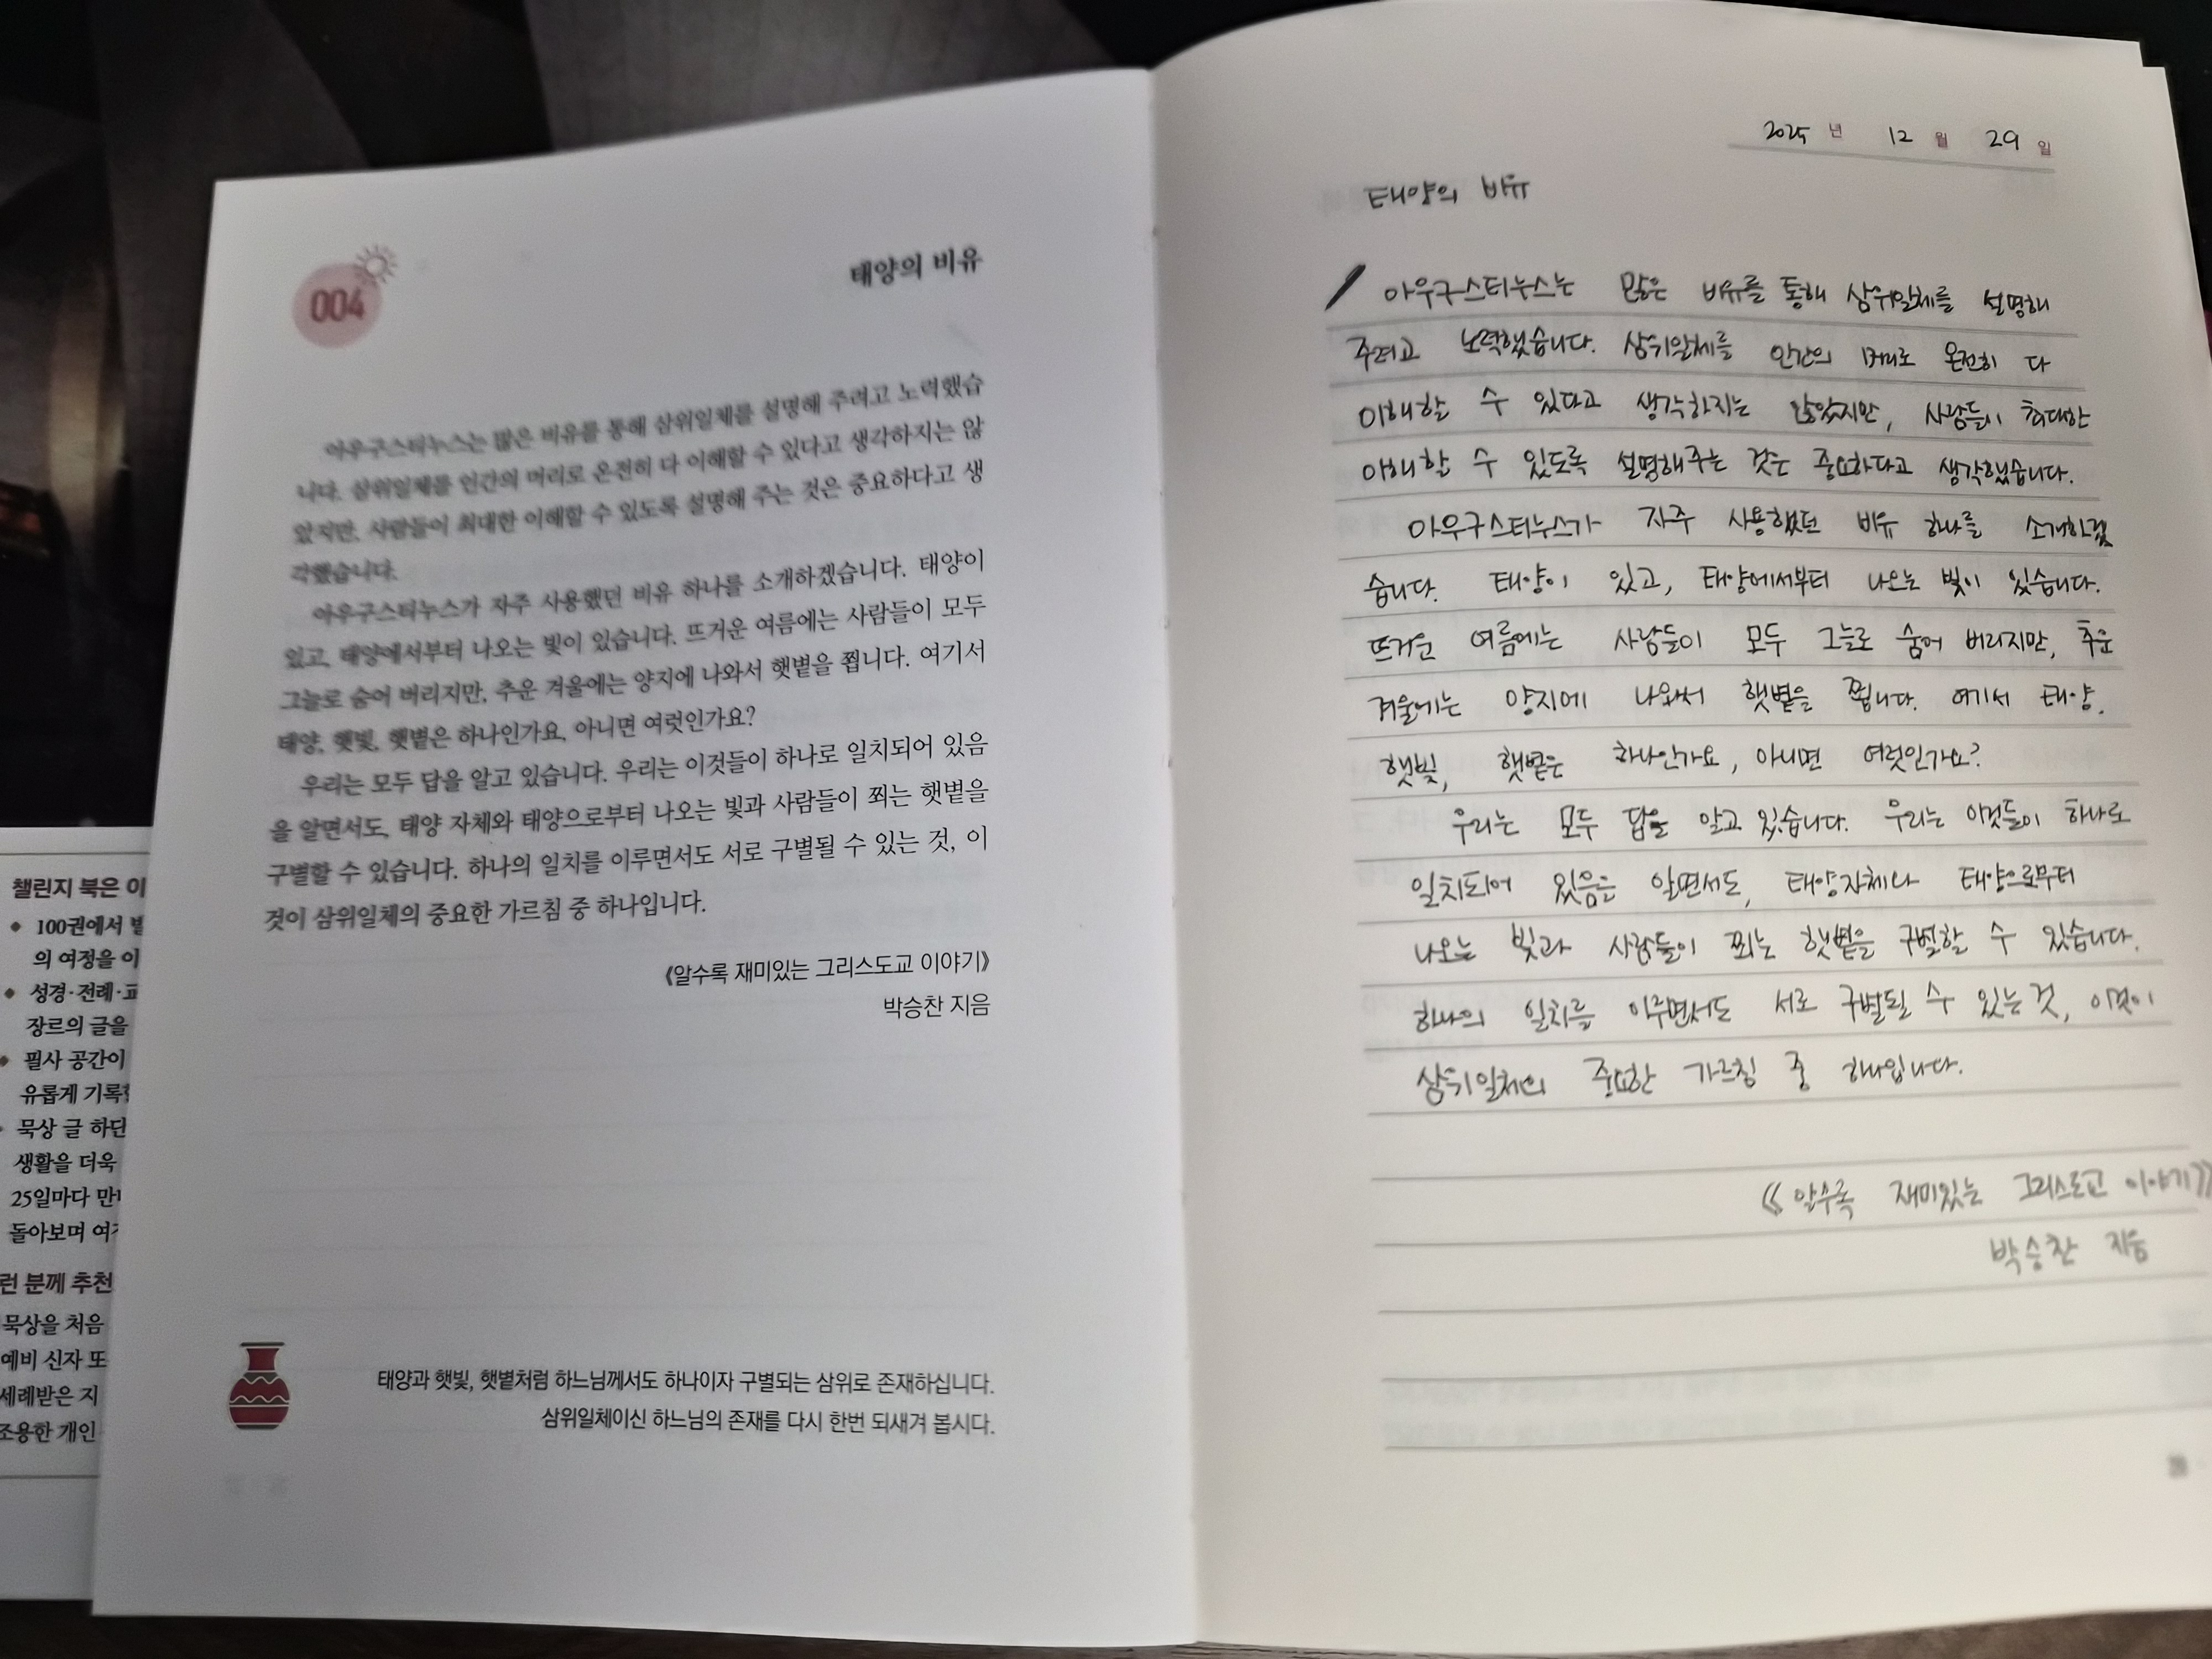 챌린지 북은 이
• 100권에서
의 여정을 이
• 성경·전례·교
장르의 글을
• 필사 공간이
유롭게 기록
• 묵상 글 하단
생활을 더욱
25일마다
돌아보며
런 분께 추천
묵상을 처음
예비 신자 또
세례받은 지
조용한 개인
004
태양의 비유
아우구스티누스는 많은 비유를 통해 삼위일체를 설명해 주려고 노력했습
니다. 삼위일체를 인간의 머리로 온전히 다 이해할 수 있다고 생각하지는 않
았지만, 사람들이 최대한 이해할 수 있도록 설명해 주는 것은 중요하다고 생
각했습니다.
아우구스티누스가 자주 사용했던 비유 하나를 소개하겠습니다. 태양이
있고, 태양에서부터 나오는 빛이 있습니다. 뜨거운 여름에는 사람들이 모두
그늘로 숨어 버리지만, 추운 겨울에는 양지에 나와서 햇볕을 쬡니다. 여기서
태양, 햇빛, 햇볕은 하나인가요, 아니면 여럿인가요?
우리는 모두 답을 알고 있습니다. 우리는 이것들이 하나로 일치되어 있음
을 알면서도, 태양 자체와 태양으로부터 나오는 빛과 사람들이 쬐는 햇볕을
구별할 수 있습니다. 하나의 일치를 이루면서도 서로 구별될 수 있는 것, 이
것이 삼위일체의 중요한 가르침 중 하나입니다.
《알수록 재미있는 그리스도교 이야기》
박승찬 지음
태양과 햇빛, 햇볕처럼 하느님께서도 하나이자 구별되는 삼위로 존재하십니다.
삼위일체이신 하느님의 존재를 다시 한번 되새겨 봅시다.
2025 년 12 월 29 일
태양의 비유
아우구스티누스는 많은 비유를 통해 삼위일체를 설명해
주려고 노력했습니다. 삼위일체를 인간의 머리로 온전히 다
이해할 수 있다고 생각하지는 않았지만, 사람들이 최대한
이해할 수 있도록 설명해주는 것은 중요하다고 생각했습니다.
아우구스티누스가 자주 사용했던 비유 하나를 소개하겠
습니다. 태양이 있고, 태양에서부터 나오는 빛이 있습니다.
뜨거운 여름에는 사람들이 모두 그늘로 숨어 버리지만, 추운
겨울에는 양지에 나와서 햇볕을 쬡니다. 여기서 태양,
햇빛, 햇볕은 하나인가요, 아니면 여럿인가요?
우리는 모두 답을 알고 있습니다. 우리는 이것들이 하나로
일치되어 있음을 알면서도, 태양자체나 태양으로부터
나오는 빛과 사람들이 쬐는 햇볕을 구별할 수 있습니다.
하나의 일치를 이루면서도 서로 구별될 수 있는 것, 이것이
삼위일체의 중요한 가르침 중 하나입니다.
《알수록 재미있는 그리스도교 이야기》
박승찬 지음